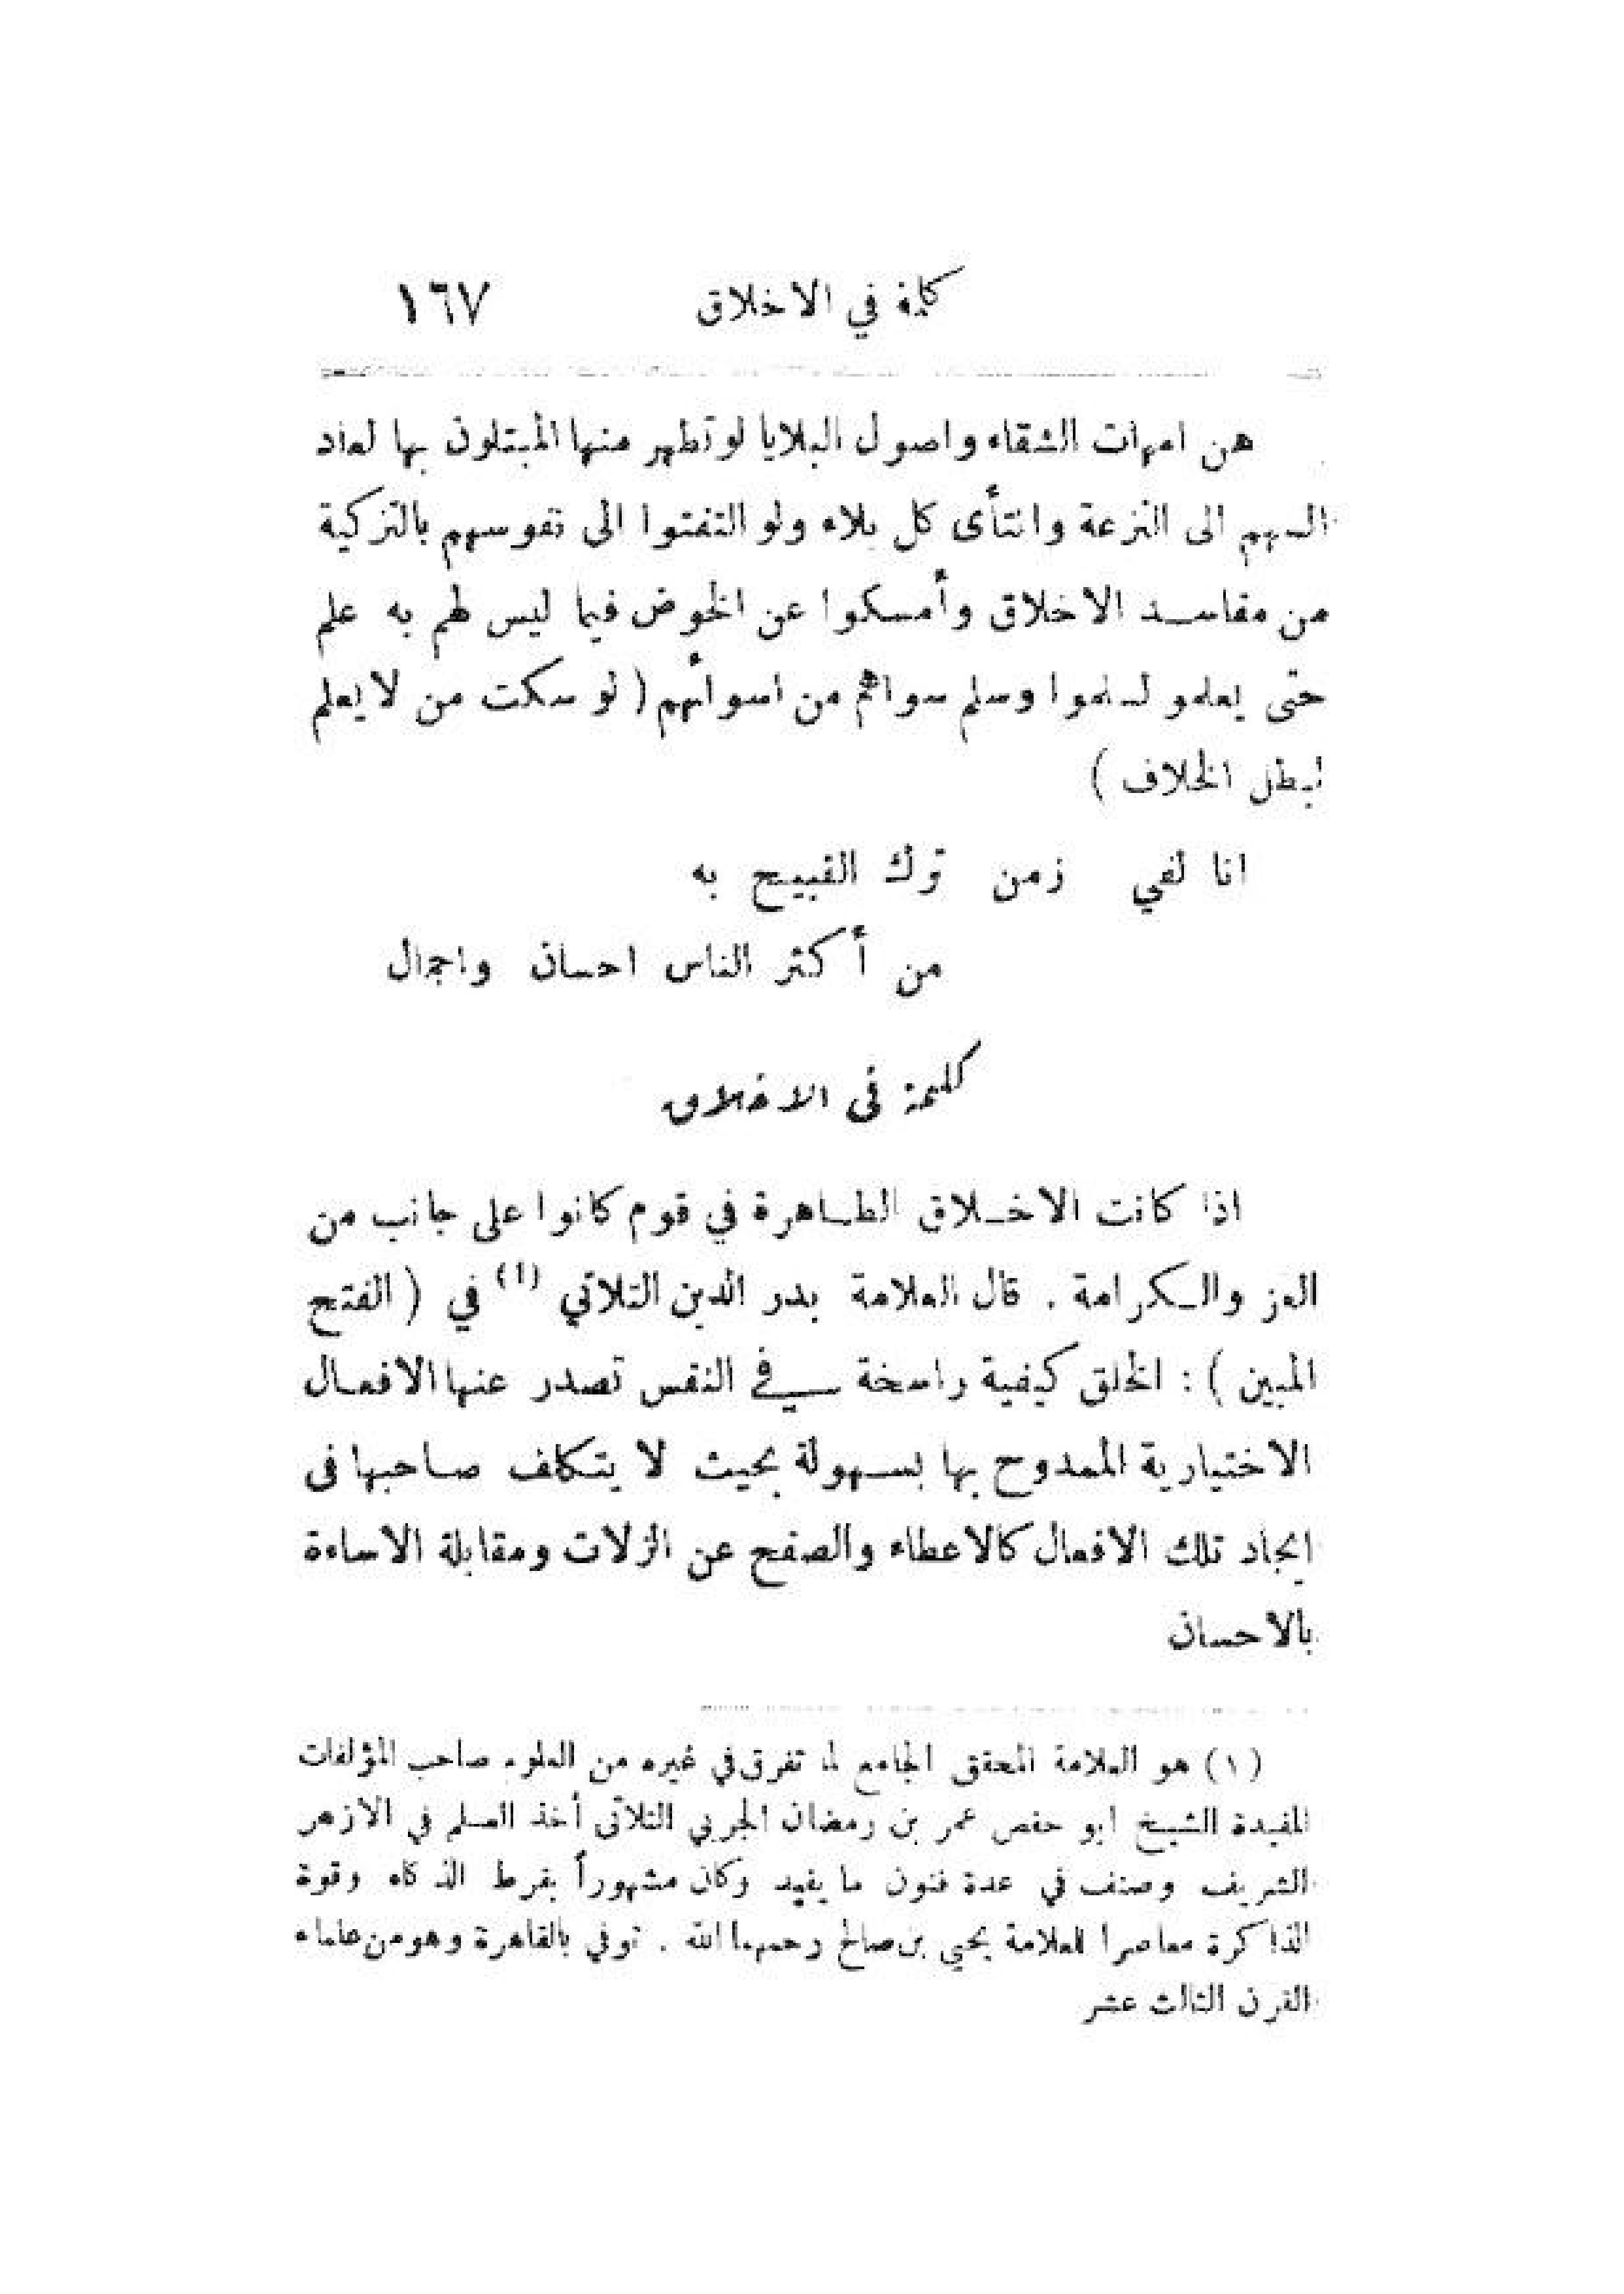 كلمة في الاخلاق ١٦٧
هن امهات الشقاء واصول البلايا لو تطهر منها المبتلون بها لعاد
اليهم الى النزعة وانتأى كل بلاء ولو التفتوا الى نفوسهم بالتزكية
من مفاسد الاخلاق وأمسكوا عن الخوض فيما ليس لهم به علم
حتى يعلمو لسلموا وسلم سواهم من اسوائهم ( لو سكت من لا يعلم
لبطل الخلاف )
انا لفي زمن ترك القبيح به
من أكثر الناس احسان واجمال
كلمة فى الاخلاق
اذا كانت الاخلاق الطاهرة في قوم كانوا على جانب من
العز والكرامة . قال العلامة بدر الدين التلاتي (١) في ( الفتح
المبين ) : الخلق كيفية راسخة في النفس تصدر عنها الافعال
الاختيارية الممدوح بها بسهولة بحيث لا يتكلف صاحبها فى
ايجاد تلك الافعال كالاعطاء والصفح عن الزلات ومقابلة الاساءة
بالاحسان
(١) هو العلامة المحقق الجامع لما تفرق في غيره من العلوم صاحب المؤلفات
المفيدة الشيخ ابو حفص عمر بن رمضان الجربي التلاتى أخذ العلم في الازهر
الشريف وصنف في عدة فنون ما يفيد وكان مشهوراً بفرط الذكاء وقوة
الذاكرة معاصرا للعلامة يحيى بن صالح رحمهما الله . توفي بالقاهرة وهو من علماء
القرن الثالث عشر